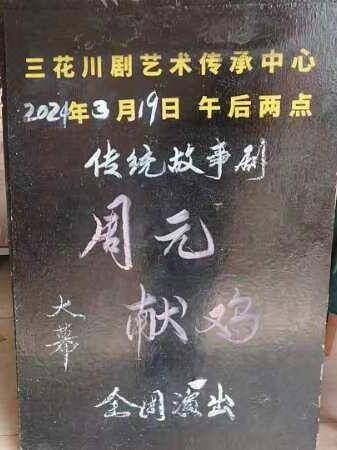 三花川剧艺术传承中心
2024年3月19日 午后两点
传统故事剧
周元
献鸡
大幕
全团演出